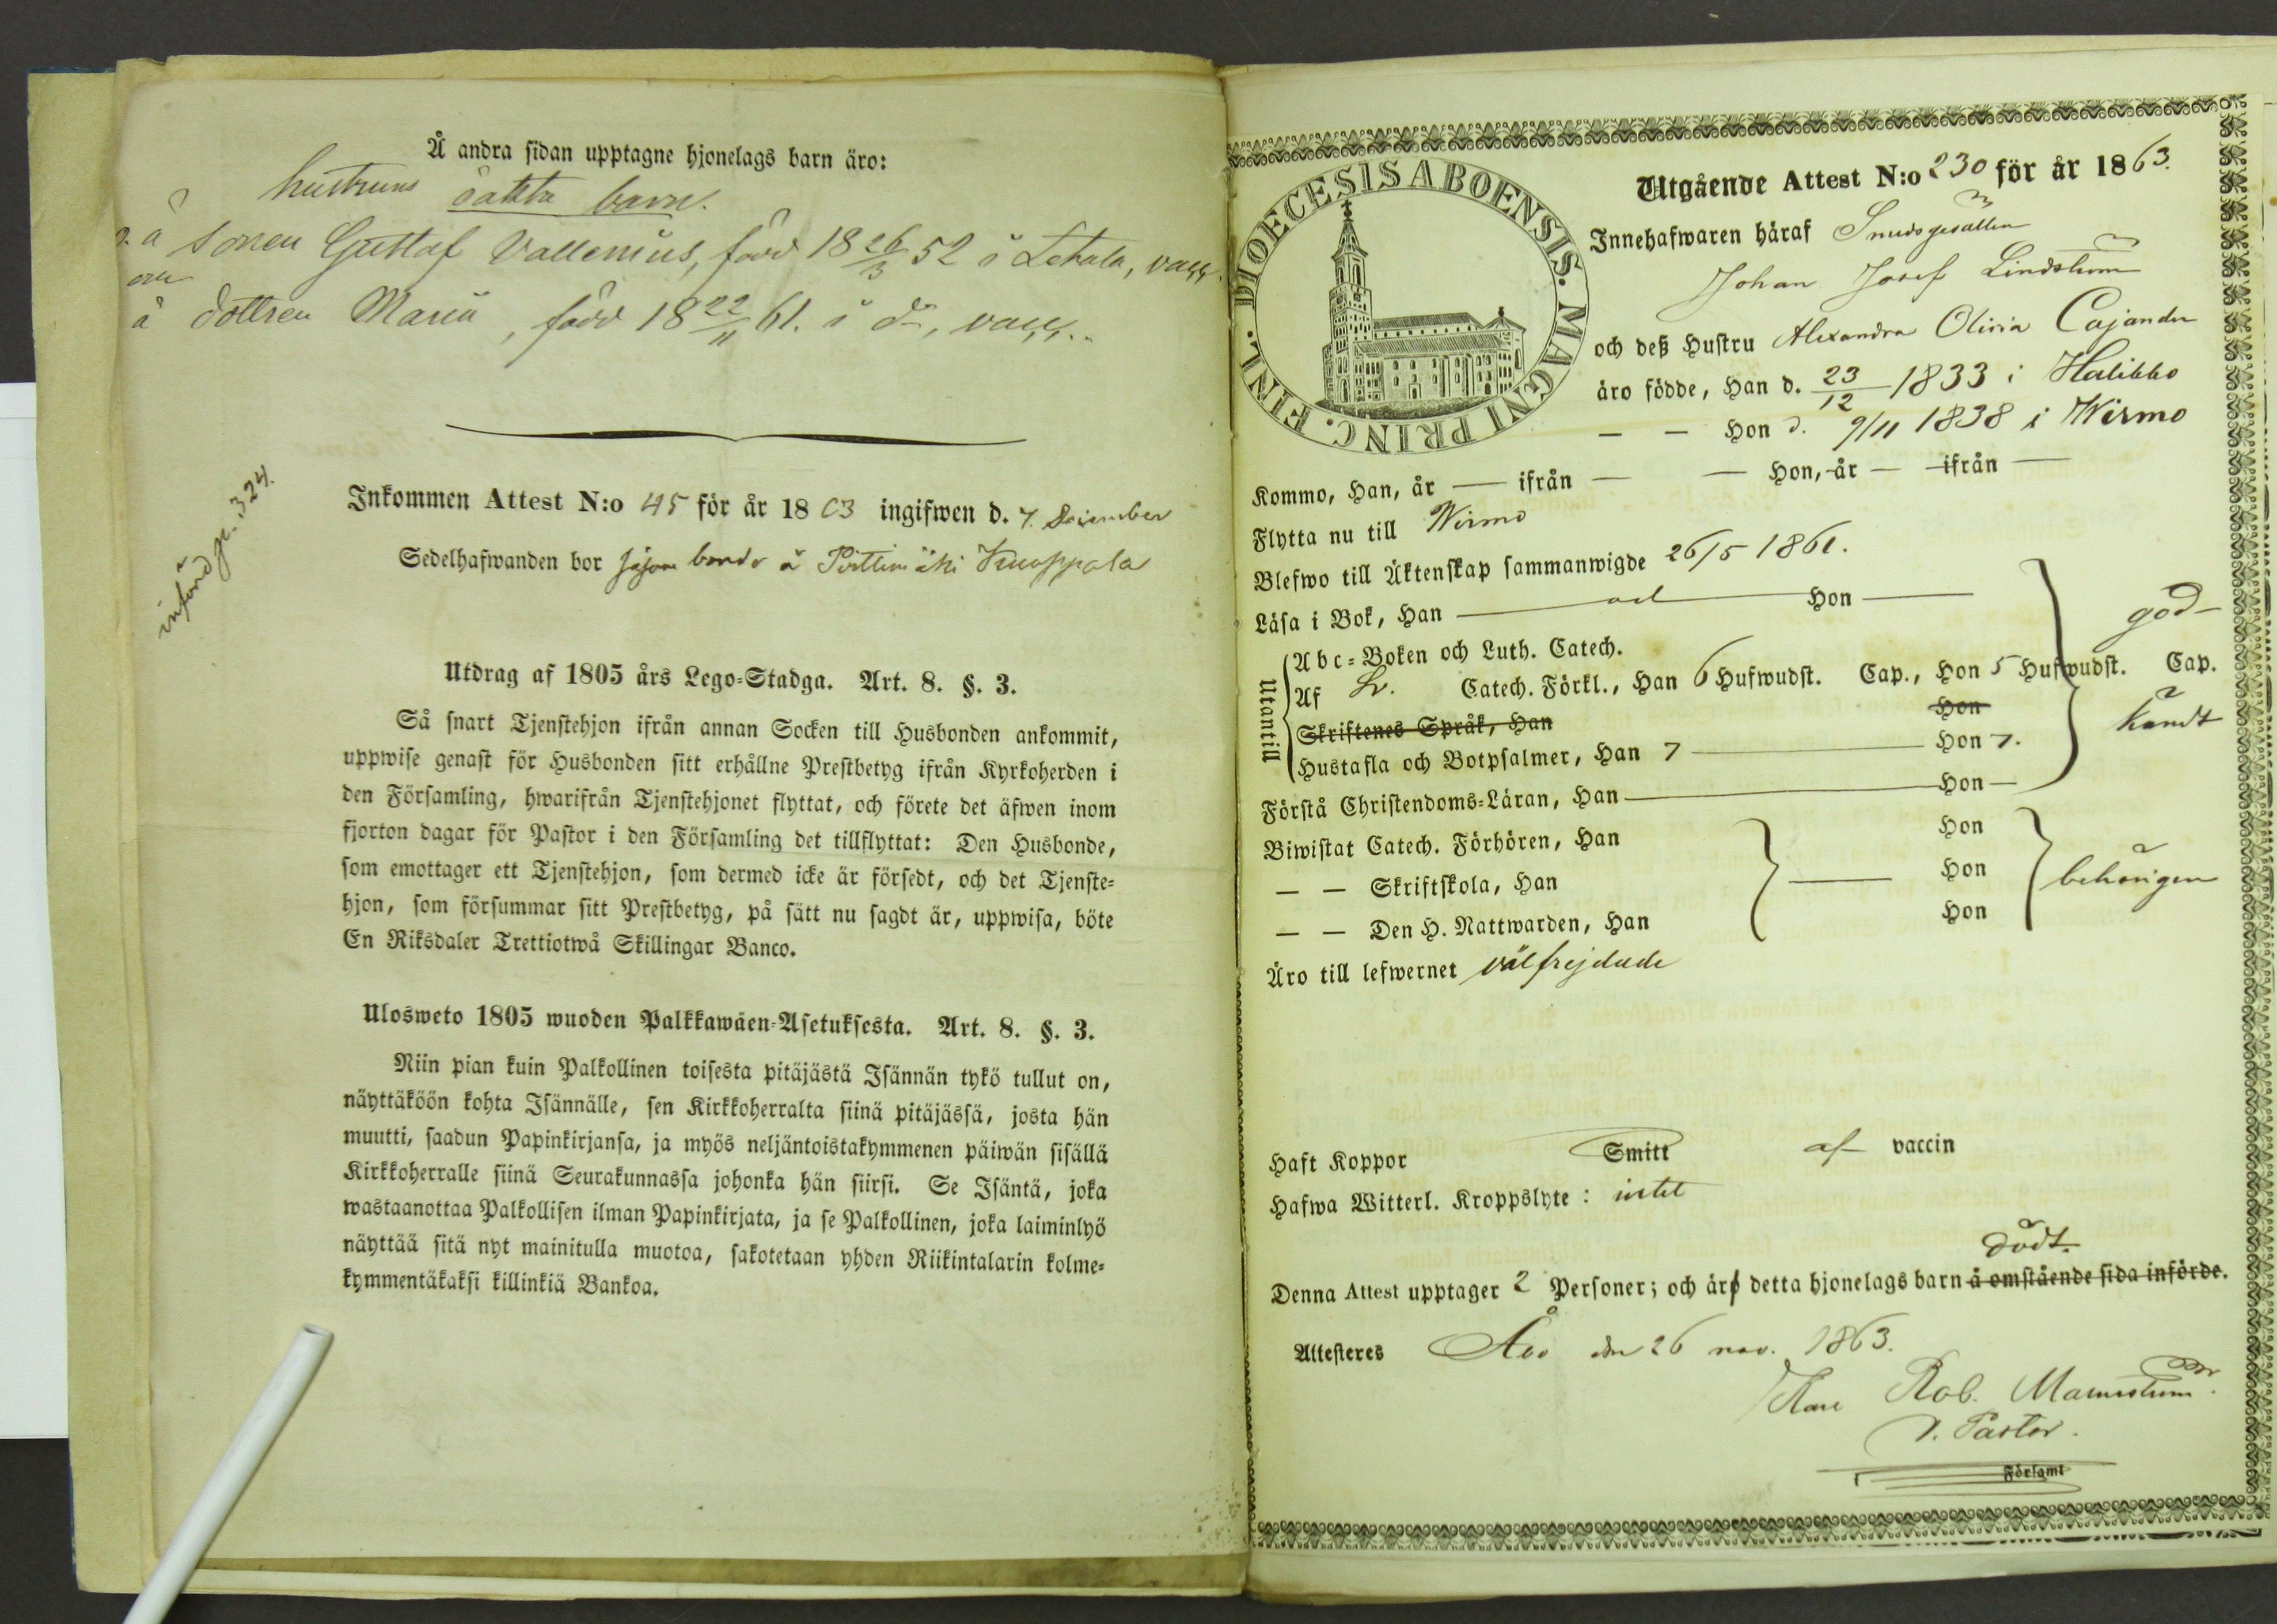 Å andra sidan upptagne hjonelags barn äro:
hustruns oäkta barn.
å sonen Gustaf Vallenius, född 18 26/3 52 i Letala, vacc.
å dottren Maria, född 18 22/11 61. i do, vacc.
Inkommen Attest N:o 45 för år 1863 ingifwen d. 7 December
Sedelhafwanden bor såsom bonde å Pirttimäki Knuppala
införd p. 324.
Utdrag af 1805 års Lego-Stadga. Art. 8. §. 3.
Så snart Tjenstehjon ifrån annan Socken till Husbonden ankommit,
uppwise genast för Husbonden sitt erhållne Prestbetyg ifrån Kyrkoherden i
den Församling, hwarifrån Tjenstehjonet flyttat, och förete det äfwen inom
fjorton dagar för Pastor i den Församling det tillflyttat: Den Husbonde,
som emottager ett Tjenstehjon, som dermed icke är försedt, och det Tjenste-
hjon, som försummar sitt Prestbetyg, på sätt nu sagdt är, uppwisa, böte
En Riksdaler Trettiotwå Skillingar Banco.
Ulosweto 1805 wuoden Palkkawäen-Asetuksesta. Art. 8. §. 3.
Niin pian kuin Palkollinen toisesta pitäjästä Isännän tykö tullut on,
näyttäköön kohta Isännälle, sen Kirkkoherralta siinä pitäjässä, josta hän
muutti, saadun Papinkirjansa, ja myös neljäntoistakymmenen päiwän sisällä
Kirkkoherralle siinä Seurakunnassa johonka hän siirsi. Se Isäntä, joka
wastaanottaa Palkollisen ilman Papinkirjata, ja se Palkollinen, joka laiminlyö
näyttää sitä nyt mainitulla muotoa, sakotetaan yhden Riikintalarin kolme-
kymmentäkaksi killinkiä Bankoa.
DIOECESIS ABOENSIS. MAGNI PRINC. FINL.
Utgående Attest N:o 230 för år 1863.
Innehafwaren häraf Smedsgesällen
Johan Josef Lindström
och deß Hustru Alexandra Olivia Cajander
äro födde, Han d. 23/12 1833 i Halikko
— — Hon d. 9/11 1838 i Wirmo
Kommo, Han, år — ifrån — — Hon, år — ifrån —
Flytta nu till Wirmo
Blefwo till Äktenskap sammanwigde 26/5 1861.
Läsa i Bok, Han — och — Hon —
Utantill
Abc-Boken och Luth. Catech.
Af Sv. Catech. Förkl., Han 6 Hufwudst. Cap., Hon 5 Hufwudst. Cap.
Skriftenes Språk, Han Hon
Hustafla och Botpsalmer, Han 7 — Hon 7.
Förstå Christendoms-Läran, Han — Hon —
god-
kändt
Biwistat Catech. Förhören, Han Hon
— — Skriftskola, Han — Hon behörigen
— — Den H. Nattwarden, Han Hon
Äro till lefwernet välfrejdade
Haft Koppor Smitt af vaccin
Hafwa Witterl. Kroppslyte: intet
dödt.
Denna Attest upptager 2 Personer; och äro detta hjonelags barn å omstående sida införde.
Attesteres Åbo den 26 nov. 1863.
Karl Rob. Malmström
v. Pastor.
Församl